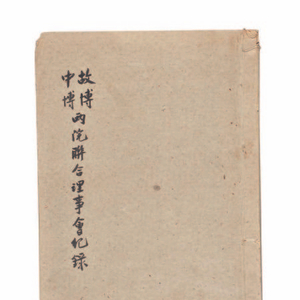 故博
中博
兩院聯合理事會紀錄